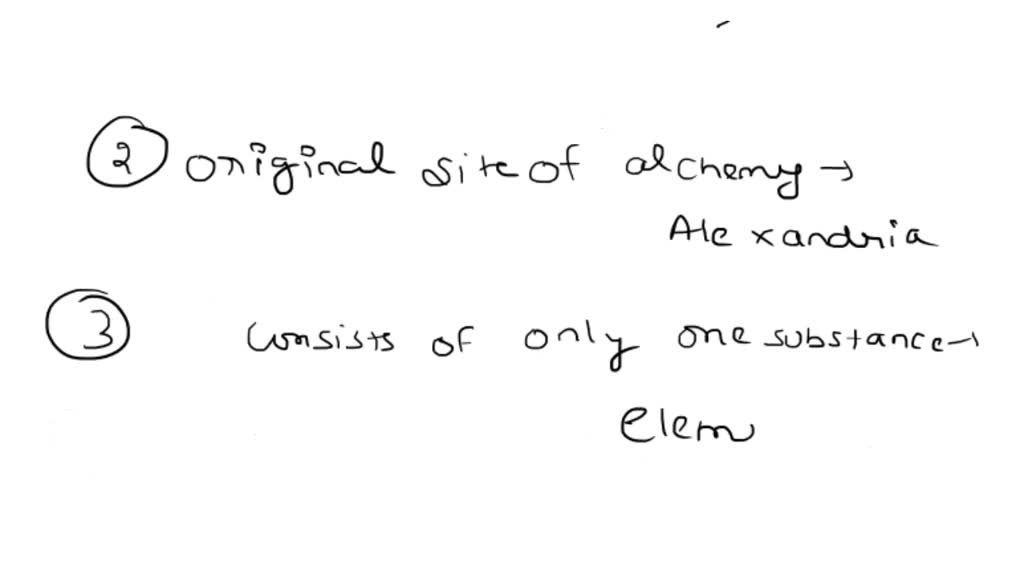 ② original site of alchemy →
Alexandria
③ Consists of only one substance →
Elem